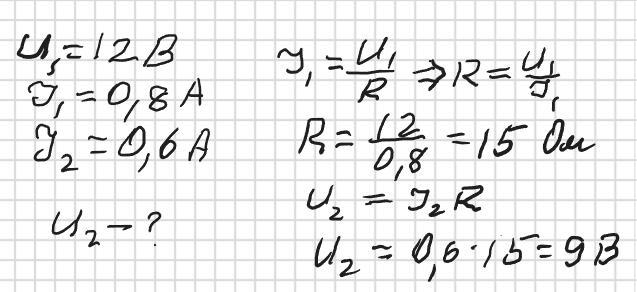 U₁ = 12 В
I₁ = 0,8 А
I₂ = 0,6 А
U₂ – ?
I₁ = U₁/R ⇒ R = U₁/I₁
R = 12/0,8 = 15 Ом
U₂ = I₂ R
U₂ = 0,6 · 15 = 9 В